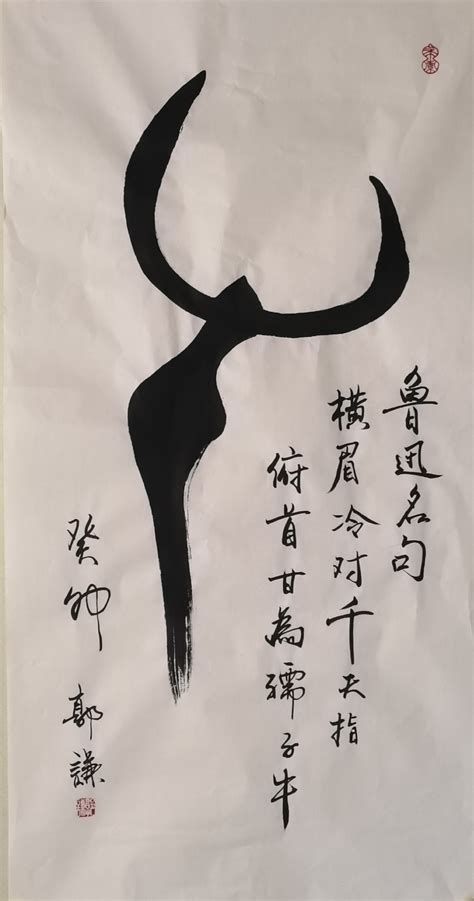 鲁迅名句
横眉冷对千夫指
俯首甘為孺子牛
癸卯 郭謙